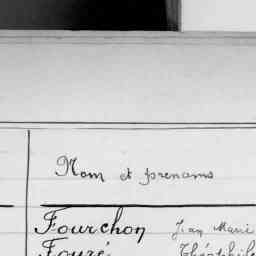 Nom et prenoms
Fourchon Jean Marie
Fouré Théophile